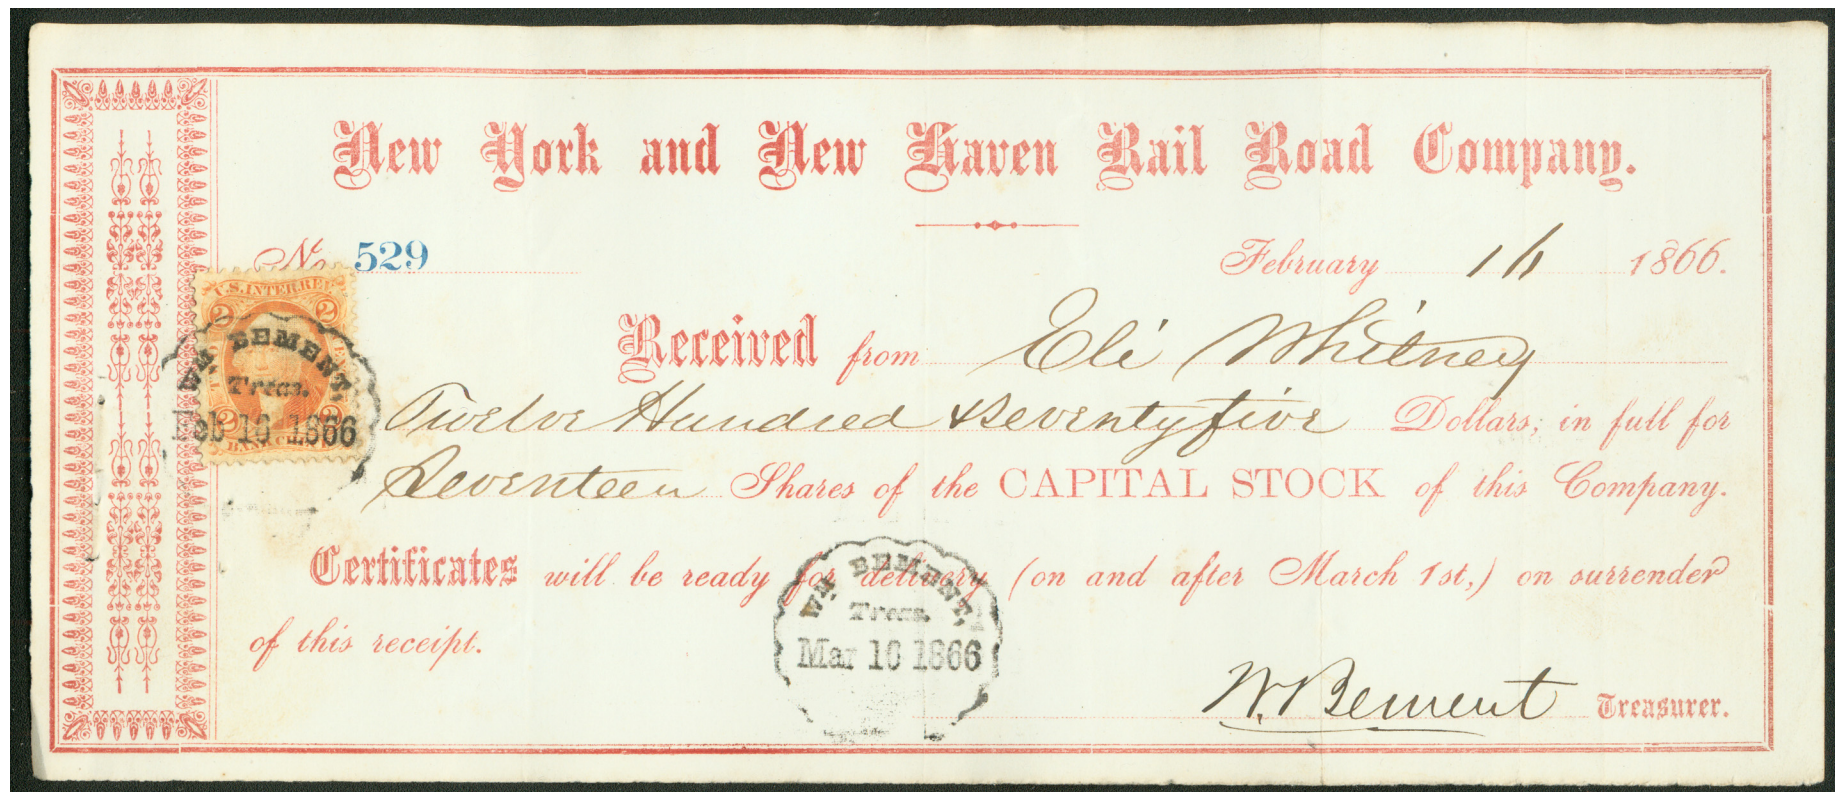 New York and New Haven Rail Road Company.
No. 529 February 16 1866.
U.S. INTER. REV.
2 2
Received from Eli Whitney
WM BEMENT,
Treas.
Twelve Hundred & Seventy five Dollars; in full for
2 2
Feb 16 1866
Seventeen Shares of the CAPITAL STOCK of this Company.
Certificates will be ready for delivery (on and after March 1st,) on surrender
of this receipt.
WM BEMENT,
Treas.
Mar 10 1866
W. Bement Treasurer.